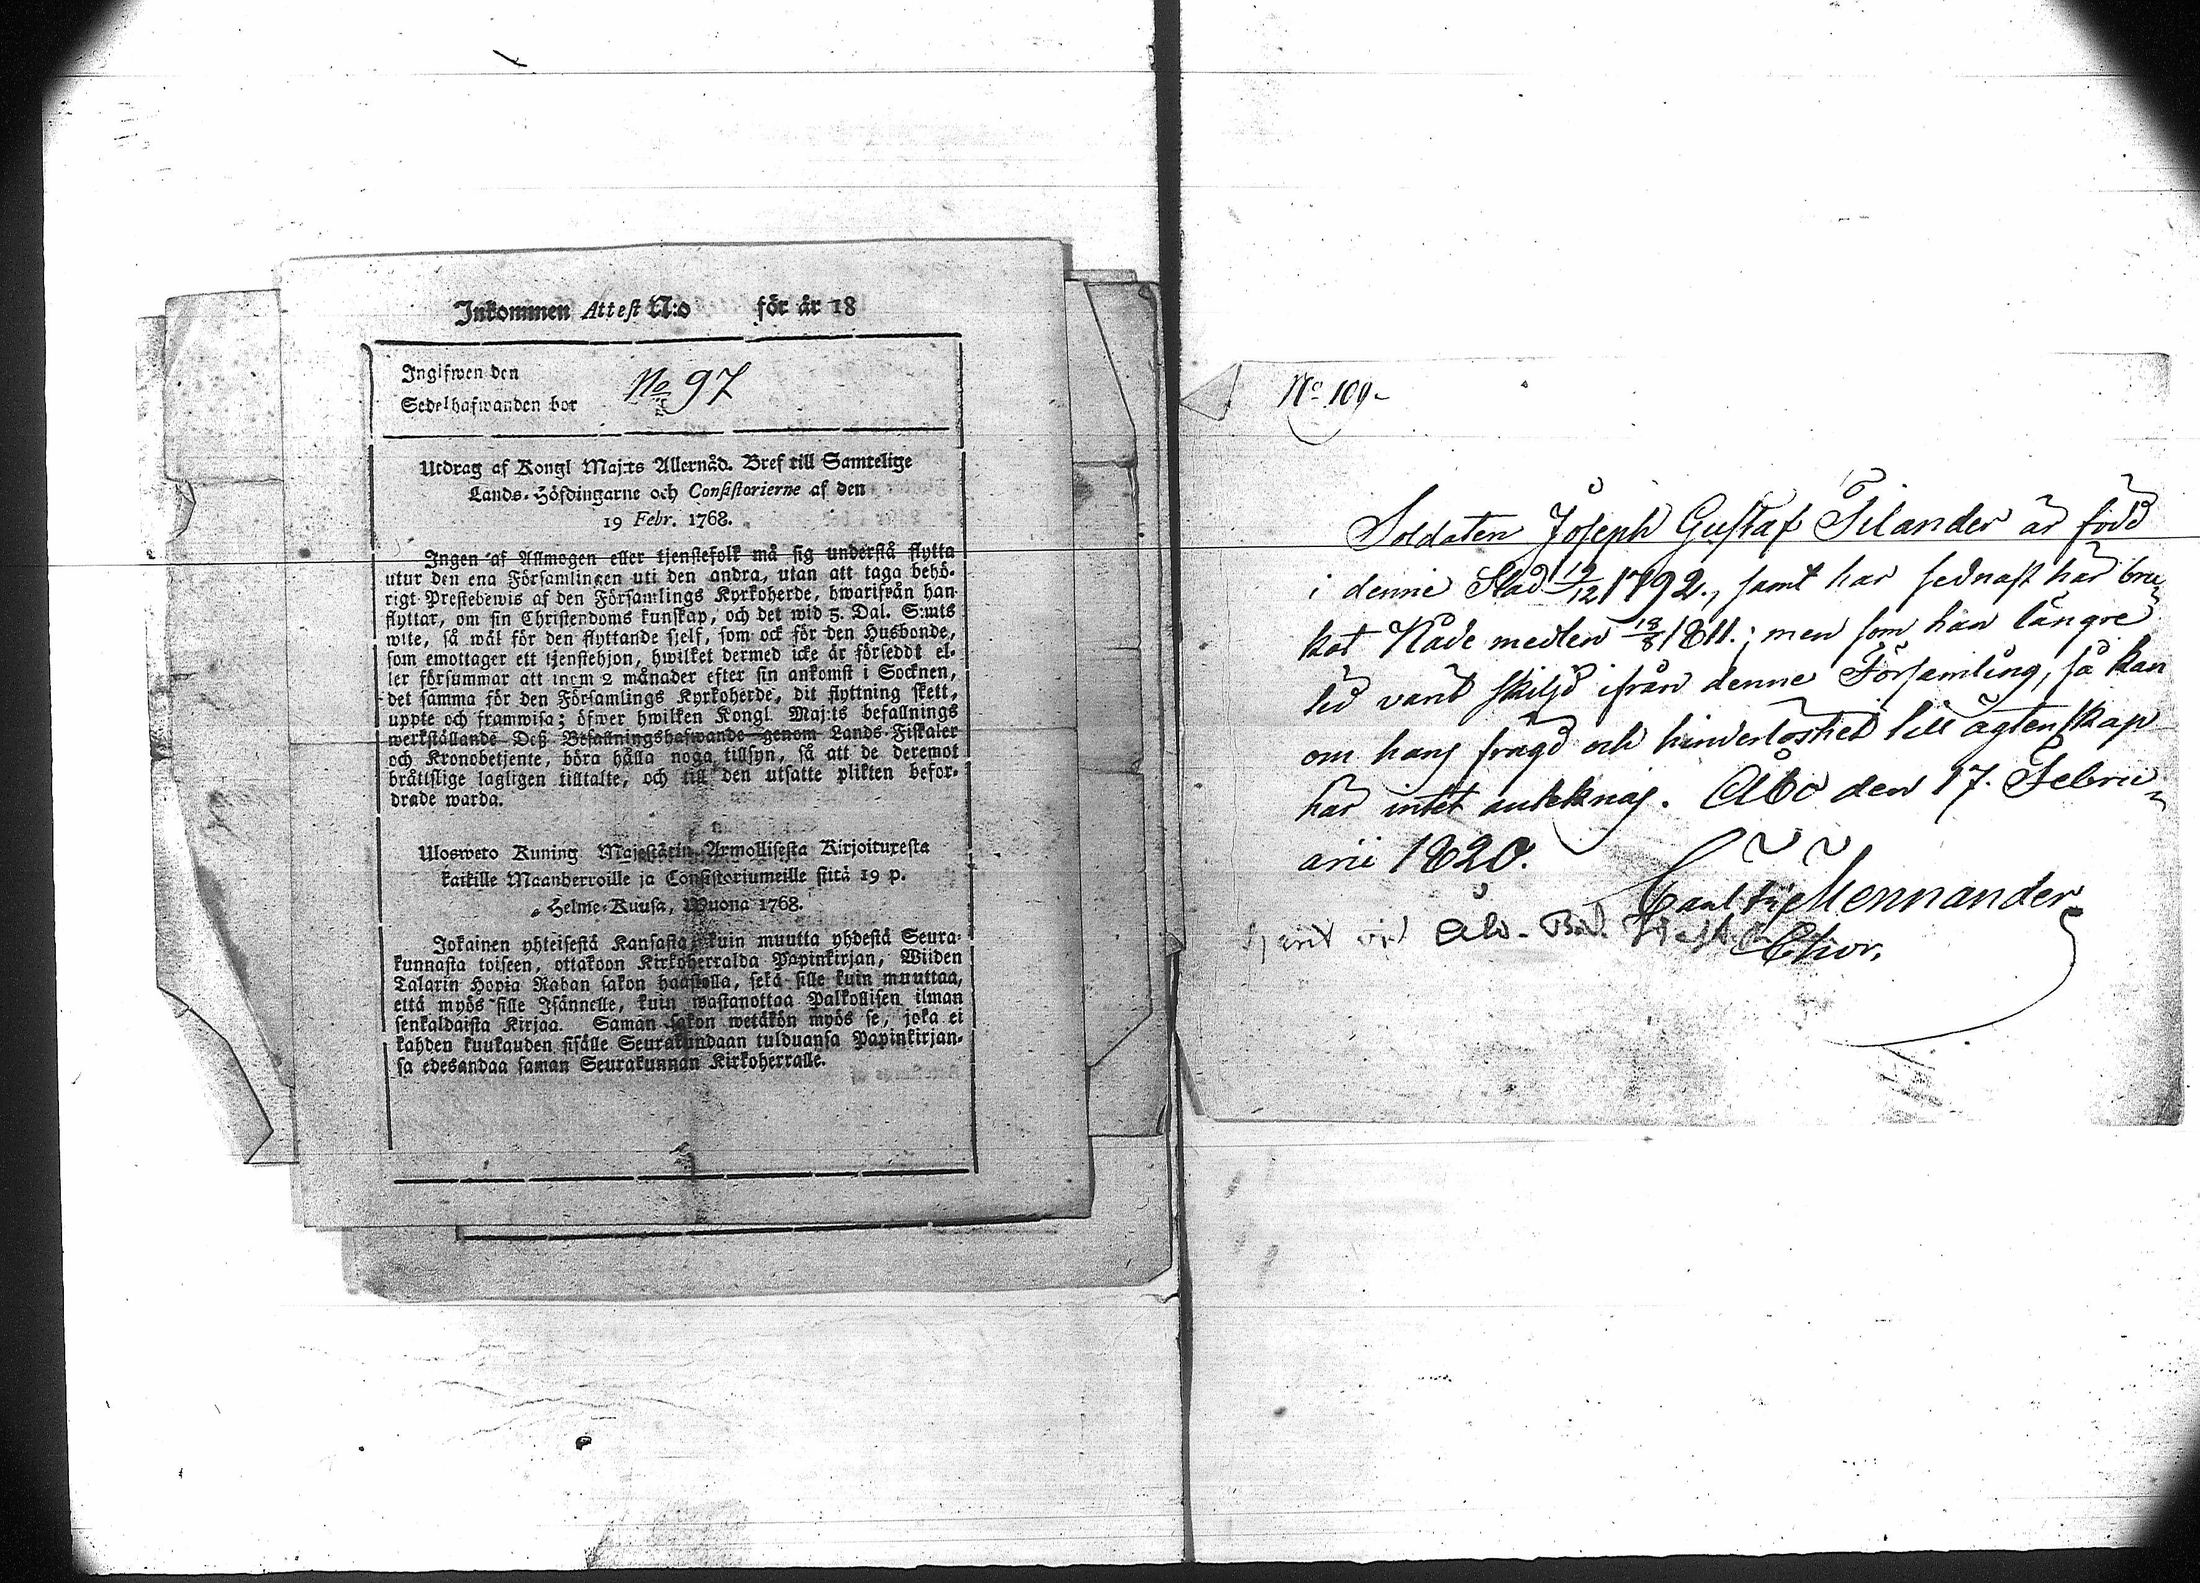 Inkommen Attest N:o för år 18
Ingifwen den
Sedelhafwanden bor
No 97
Utdrag af Kongl Maj:ts Allernåd. Bref till Samtelige
Lands-Höfdingarne och Consistorierne af den
19 Febr. 1768.
Ingen af Allmogen eller tjenstefolk må sig understå flytta
utur den ena Församlingen uti den andra, utan att taga behö-
rigt Prestebewis af den Församlings Kyrkoherde, hwarifrån han
flyttar, om sin Christendoms kunskap, och det wid 5. Dal. S:mts
wite, så wäl för den flyttande sjelf, som ock för den Husbonde,
som emottager ett tjenstehjon, hwilket dermed icke är förseddt el-
ler försummar att inom 2 månader efter sin ankomst i Socknen,
det samma för den Församlings Kyrkoherde, dit flyttning skett,
uppte och framwisa; öfwer hwilken Kongl. Maj:ts befallnings
werkställande Deß Befallningshafwande genom Lands-Fiskaler
och Kronobetjente, böra hålla noga tillsyn, så att de deremot
bråttslige lagligen tilltalte, och till den utsatte plikten befor-
drade warda.
Uloswето Kuning Majestätin Armollisesta Kirjoituxesta
kaikille Maanherroille ja Consistoriumeille siitä 19 p.
Helme-Kuusa, Wuona 1768.
Jokainen yhteisestä Kansasta, kuin muutta yhdestä Seura-
kunnasta toiseen, ottakoon Kirkoherralda Papinkirjan, Wiiden
Talarin Hopia Rahan sakon haastolla, sekä sille kuin muuttaa,
että myös sille Isännelle, kuin wastanottaa Palkollisen ilman
senkaldaista Kirjaa. Saman sakon wetäkön myös se, joka ei
kahden kuukauden sisälle Seurakundaan tulduansa Papinkirjan-
sa edesandaa saman Seurakunnan Kirkoherralle.
No 109-
Soldaten Joseph Gustaf Silander är född
i denne Stad 19/12 1792., samt har sednast här bru-
kat Nåde medlen 18/8 1811.; men som han längre
tid varit skiljd ifrån denne Församling, så kan
om hans frägd och hinderlöshet till ägtenskap
här intet anteknas. Åbo den 17. Febru-
arii 1820.
Mennander